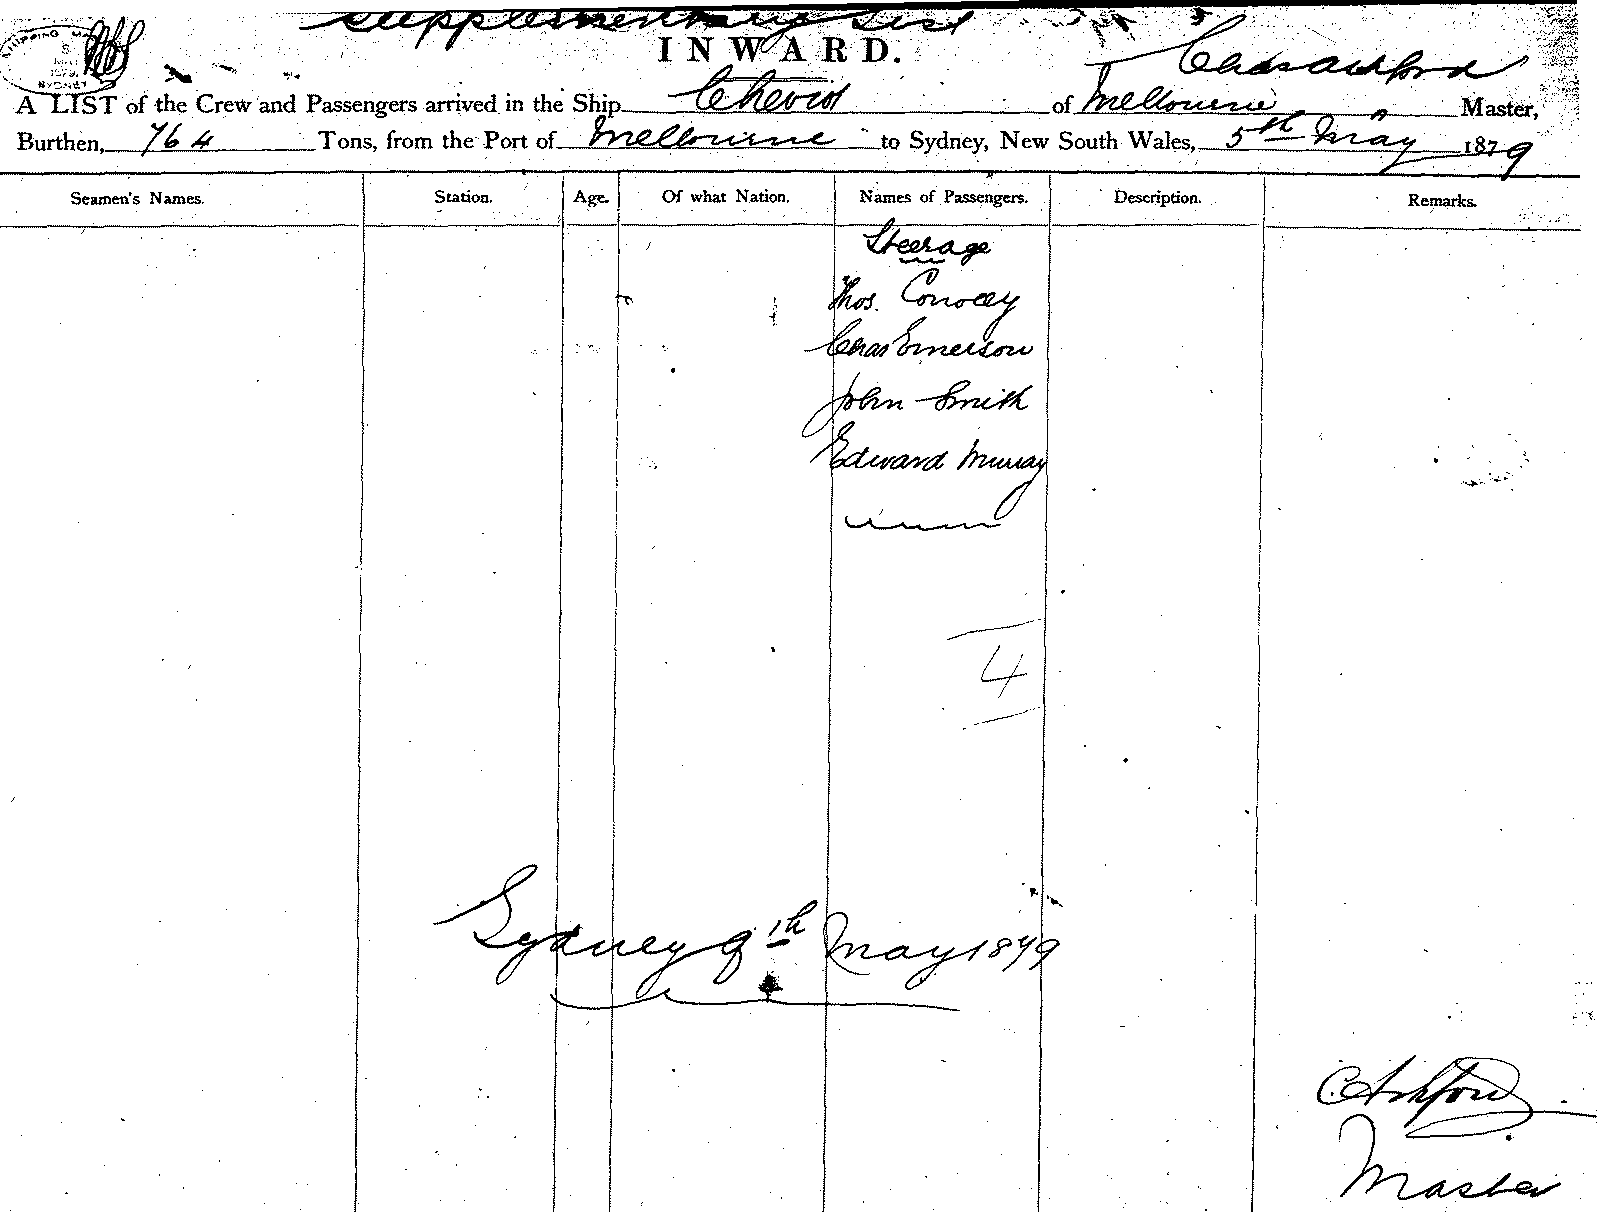 Supplementary List
INWARD.
Chas Ashford
A LIST of the Crew and Passengers arrived in the Ship Cheviot of Melbourne Master,
Burthen, 764 Tons, from the Port of Melbourne to Sydney, New South Wales, 5th May 1879
Seamen's Names. Station. Age. Of what Nation. Names of Passengers. Description. Remarks.
Steerage
Thos. Conocey
Chas Emerson
John Smith
Edward Murray
4
Sydney 9th May 1879
C Ashford
Master